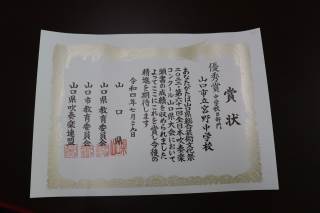 賞状
優秀賞 中学校B部門
山口市立宮野中学校
あなたがたは山口県総合芸術文化祭
2022・第六十一回全日本吹奏楽
コンクール山口県大会において
頭書の成績を収められました
よってここにこれを賞し今後の
精進を期待します
令和四年七月二九日
山口県
山口県教育委員会
山口市教育委員会
山口県吹奏楽連盟